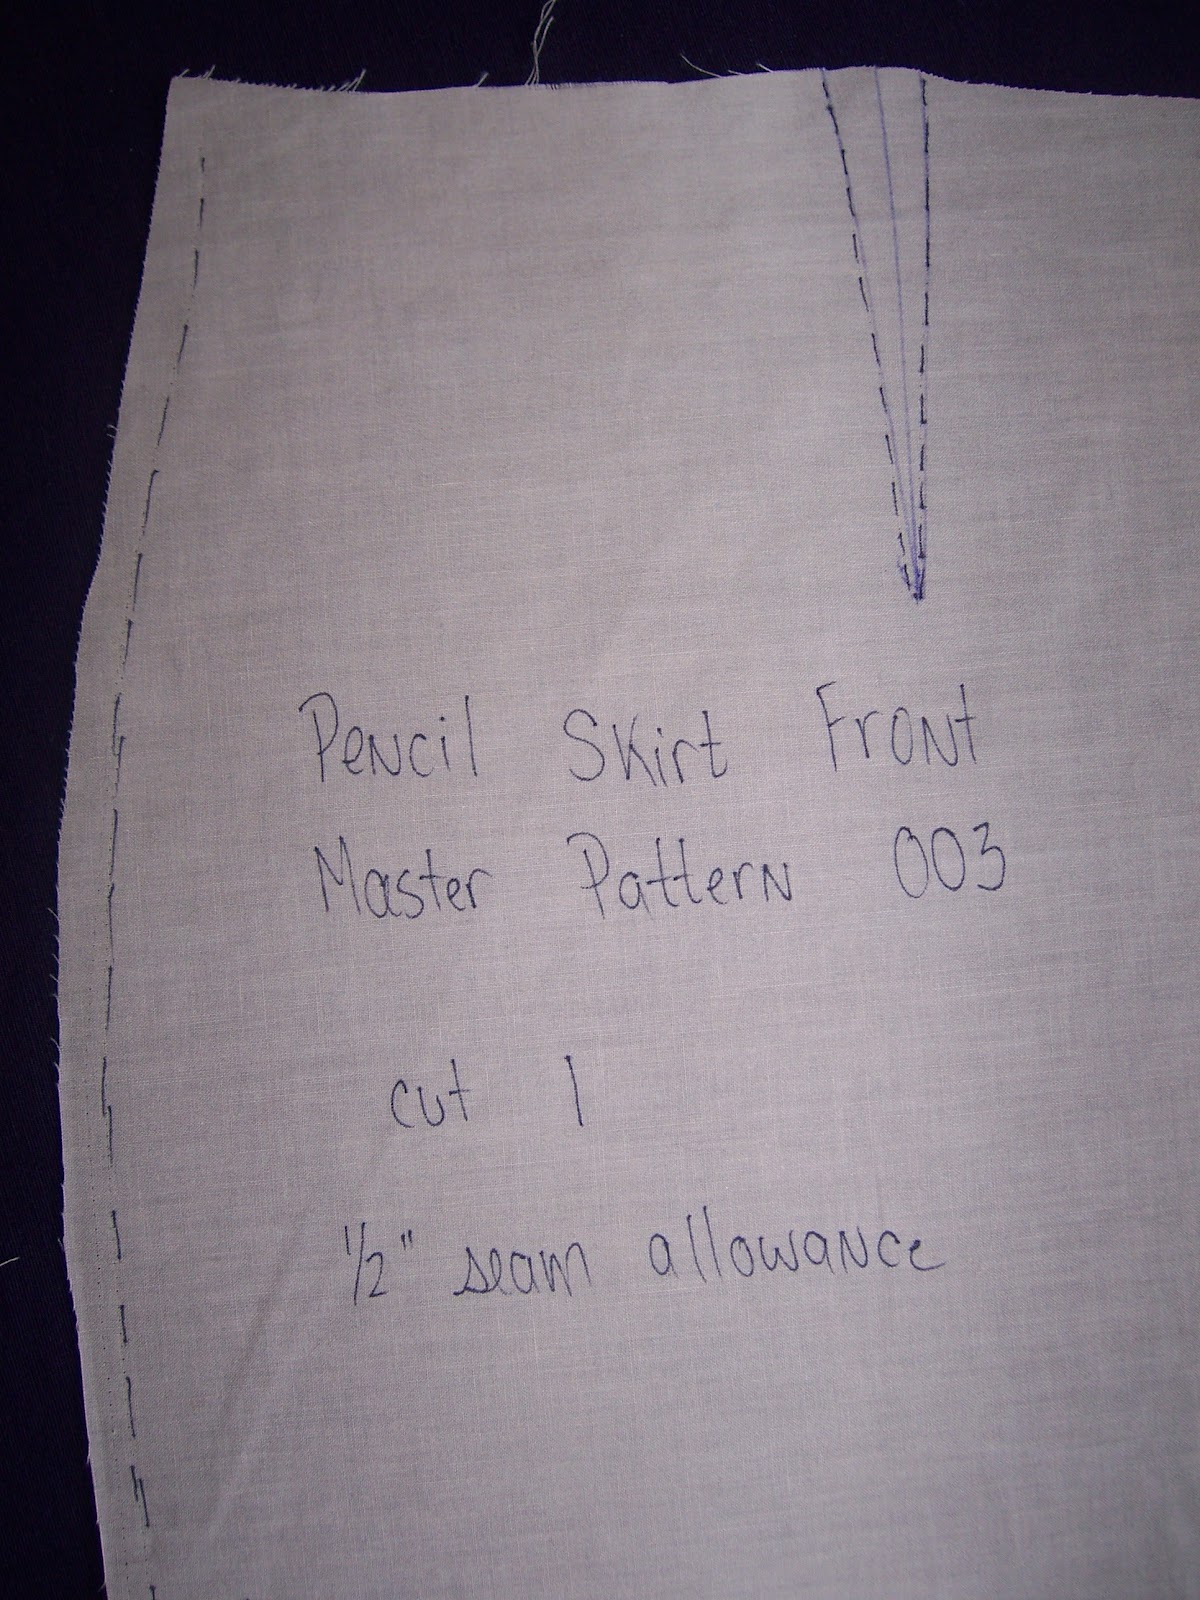 Pencil Skirt Front
Master Pattern 003
cut 1
1/2" seam allowance